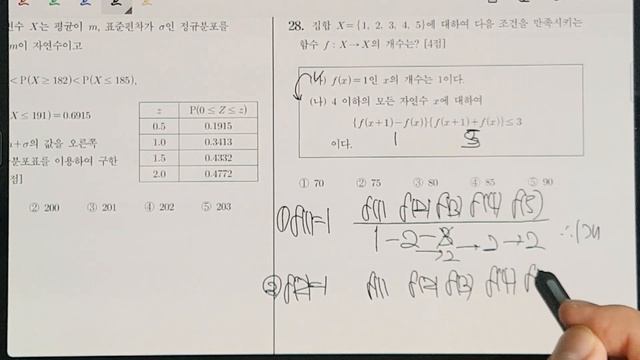 연수 X는 평균이 m, 표준편차가 σ인 정규분포를
m이 자연수이고
<P(X≥182)<P(X≤185),
X≤191)=0.6915
n+σ의 값을 오른쪽
분포표를 이용하여 구한
점]
z P(0≤Z≤z)
0.5 0.1915
1.0 0.3413
1.5 0.4332
2.0 0.4772
② 200 ③ 201 ④ 202 ⑤ 203
28. 집합 X={1, 2, 3, 4, 5}에 대하여 다음 조건을 만족시키는
함수 f : X→X의 개수는? [4점]
f(x)=1인 x의 개수는 1이다.
(나) 4 이하의 모든 자연수 x에 대하여
{f(x+1)-f(x)}{f(x+1)+f(x)}≤3
이다.
1 5
① 70 ② 75 ③ 80 ④ 85 ⑤ 90
① f(1)=1 f(1) f(2) f(3) f(4) f(5)
1-2-3→2→2
→2
② f(2)=1 f(1) f(2) f(3) f(4) f